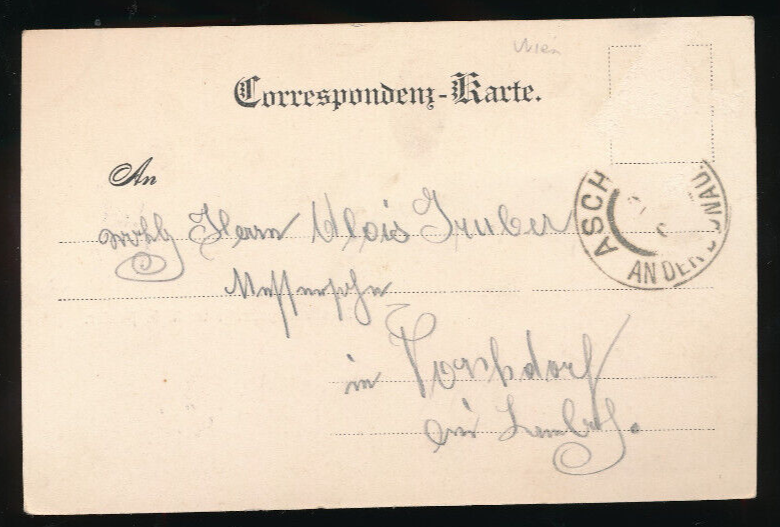 Wien
Correspondenz-Karte.
An
wohlg Herrn Alois Gruber
Messerers
in Vorchdorf
bei Lambach.
ASCH
AN DER DONAU.